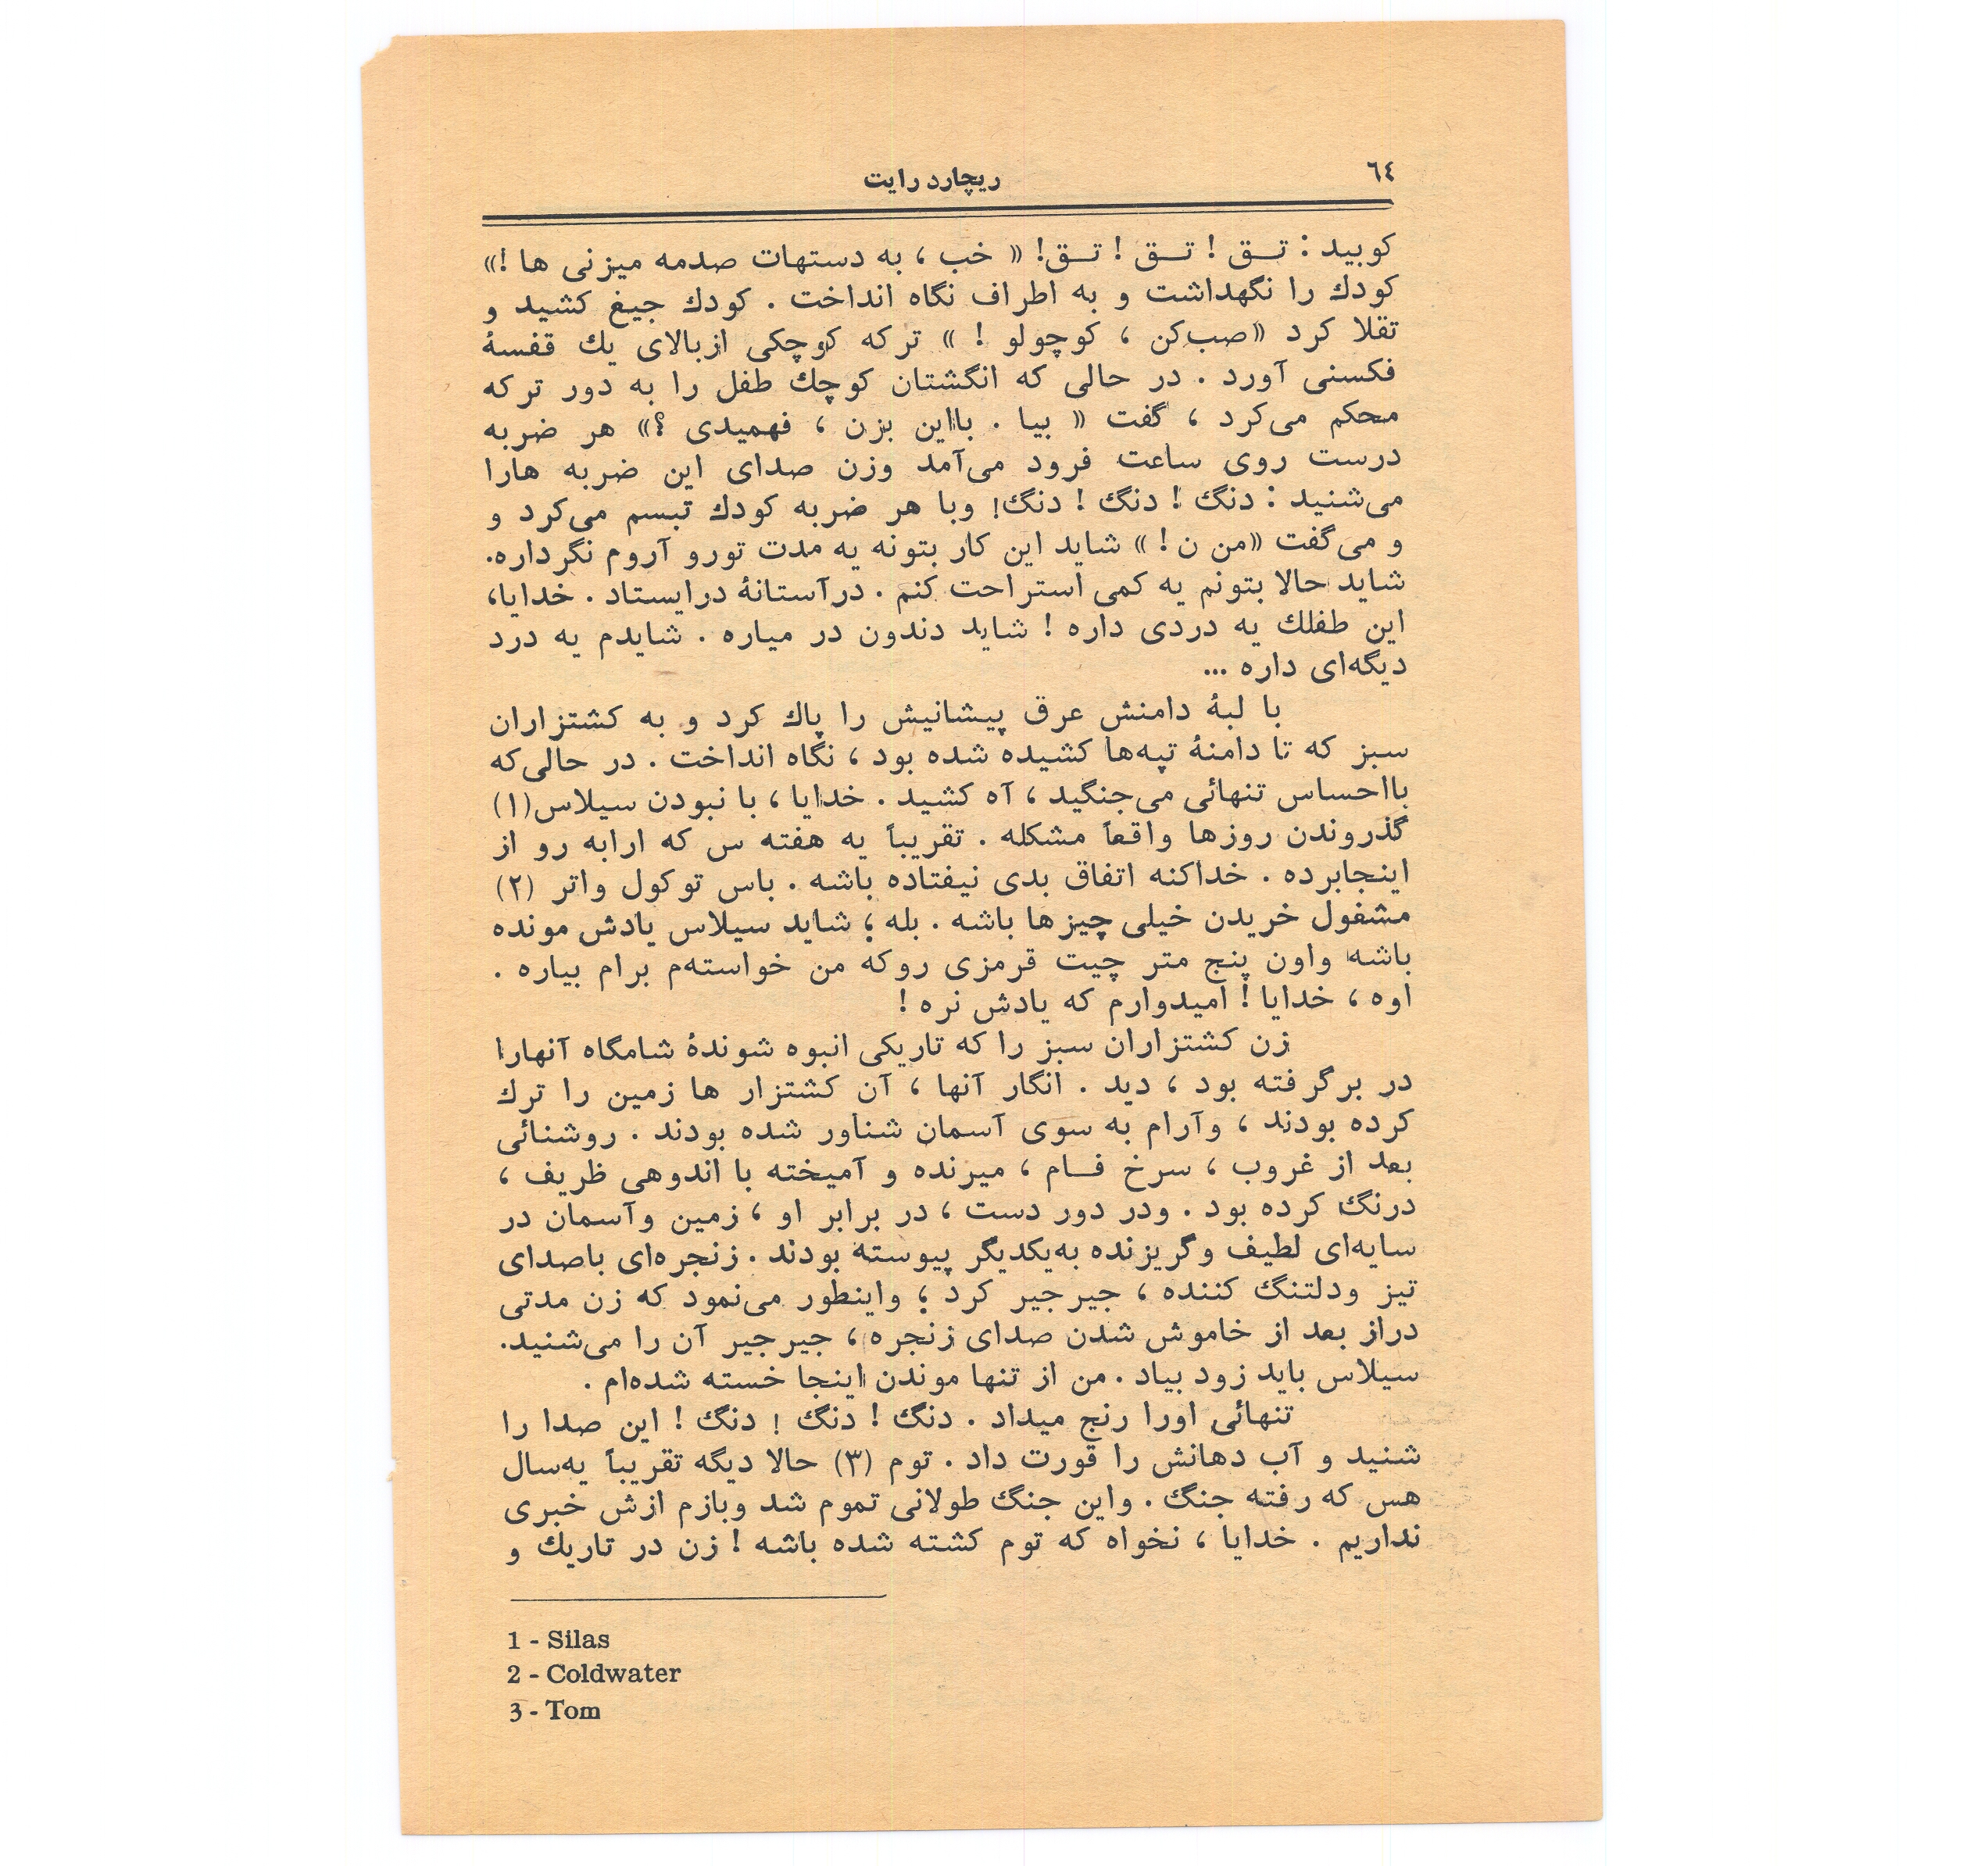 ٦٤
ریچارد رایت
کوبید : تـق ! تـق ! تـق! « خب ، به دستهات صدمه میزنی ها !»
کودك را نگهداشت و به اطراف نگاه انداخت . کودك جیغ کشید و
تقلا کرد «صب‌کن ، کوچولو ! » ترکه کوچکی ازبالای یك قفسهٔ
فکسنی آورد . در حالی که انگشتان کوچك طفل را به دور ترکه
محکم می‌کرد ، گفت « بیا . بااین بزن ، فهمیدی ؟» هر ضربه
درست روی ساعت فرود می‌آمد وزن صدای این ضربه هارا
می‌شنید : دنگ ! دنگ ! دنگ! وبا هر ضربه کودك تبسم می‌کرد و
و می‌گفت «من ن ! » شاید این کار بتونه یه مدت تورو آروم نگرداره.
شاید حالا بتونم یه کمی استراحت کنم . درآستانهٔ درایستاد . خدایا،
این طفلك یه دردی داره ! شاید دندون در میاره . شایدم یه درد
دیگه‌ای داره ...
با لبهٔ دامنش عرق پیشانیش را پاك کرد و به کشتزاران
سبز که تا دامنهٔ تپه‌ها کشیده شده بود ، نگاه انداخت . در حالی‌که
بااحساس تنهائی می‌جنگید ، آه کشید . خدایا ، با نبودن سیلاس(۱)
گذروندن روزها واقعاً مشکله . تقریباً یه هفته س که ارابه رو از
اینجابرده . خداکنه اتفاق بدی نیفتاده باشه . باس توکول واتر (۲)
مشغول خریدن خیلی چیزها باشه . بله ؛ شاید سیلاس یادش مونده
باشه واون پنج متر چیت قرمزی روکه من خواسته‌م برام بیاره .
اوه ، خدایا ! امیدوارم که یادش نره !
زن کشتزاران سبز را که تاریکی انبوه شوندهٔ شامگاه آنهارا
در برگرفته بود ، دید . انگار آنها ، آن کشتزار ها زمین را ترك
کرده بودند ، وآرام به سوی آسمان شناور شده بودند . روشنائی
بعد از غروب ، سرخ فـام ، میرنده و آمیخته با اندوهی ظریف ،
درنگ کرده بود . ودر دور دست ، در برابر او ، زمین وآسمان در
سایه‌ای لطیف وگریزنده به‌یکدیگر پیوسته بودند . زنجره‌ای باصدای
تیز ودلتنگ کننده ، جیرجیر کرد ؛ واینطور می‌نمود که زن مدتی
دراز بعد از خاموش شدن صدای زنجره ، جیرجیر آن را می‌شنید.
سیلاس باید زود بیاد . من از تنها موندن اینجا خسته شده‌ام .
تنهائی اورا رنج میداد . دنگ ! دنگ ! دنگ ! این صدا را
شنید و آب دهانش را قورت داد . توم (۳) حالا دیگه تقریباً یه‌سال
هس که رفته جنگ . واین جنگ طولانی تموم شد وبازم ازش خبری
نداریم . خدایا ، نخواه که توم کشته شده باشه ! زن در تاریك و
1 - Silas
2 - Coldwater
3 - Tom